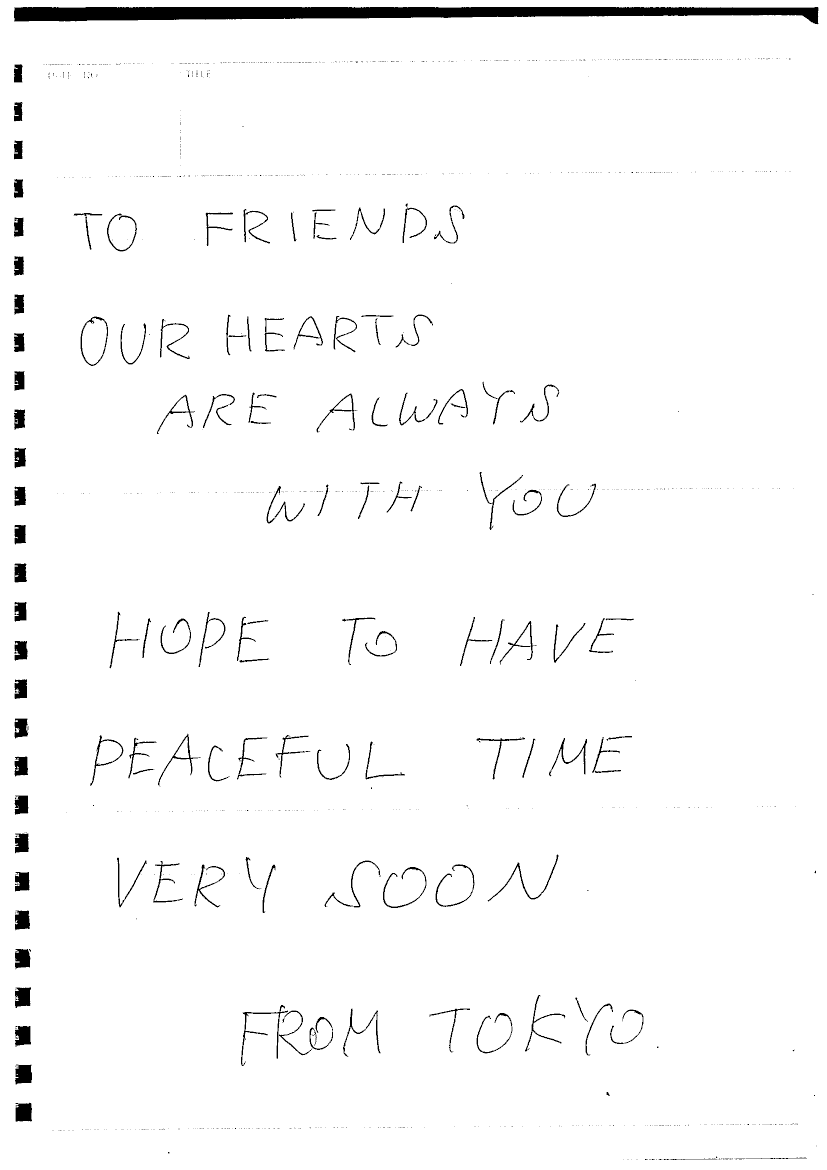 TITLE
TO FRIENDS
OUR HEARTS
ARE ALWAYS
WITH YOU
HOPE TO HAVE
PEACEFUL TIME
VERY SOON
FROM TOKYO.